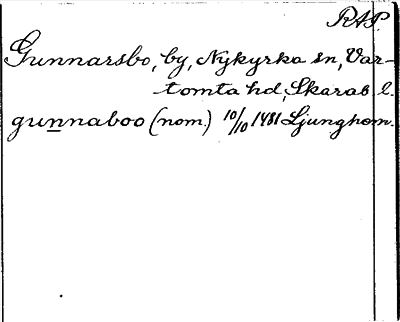 RAP.
Gunnarsbo, by, Nykyrka sn, Var-
tomta hd, Skarab. l.
gunnaboo (nom.) 10/10 1481 Ljunghem.